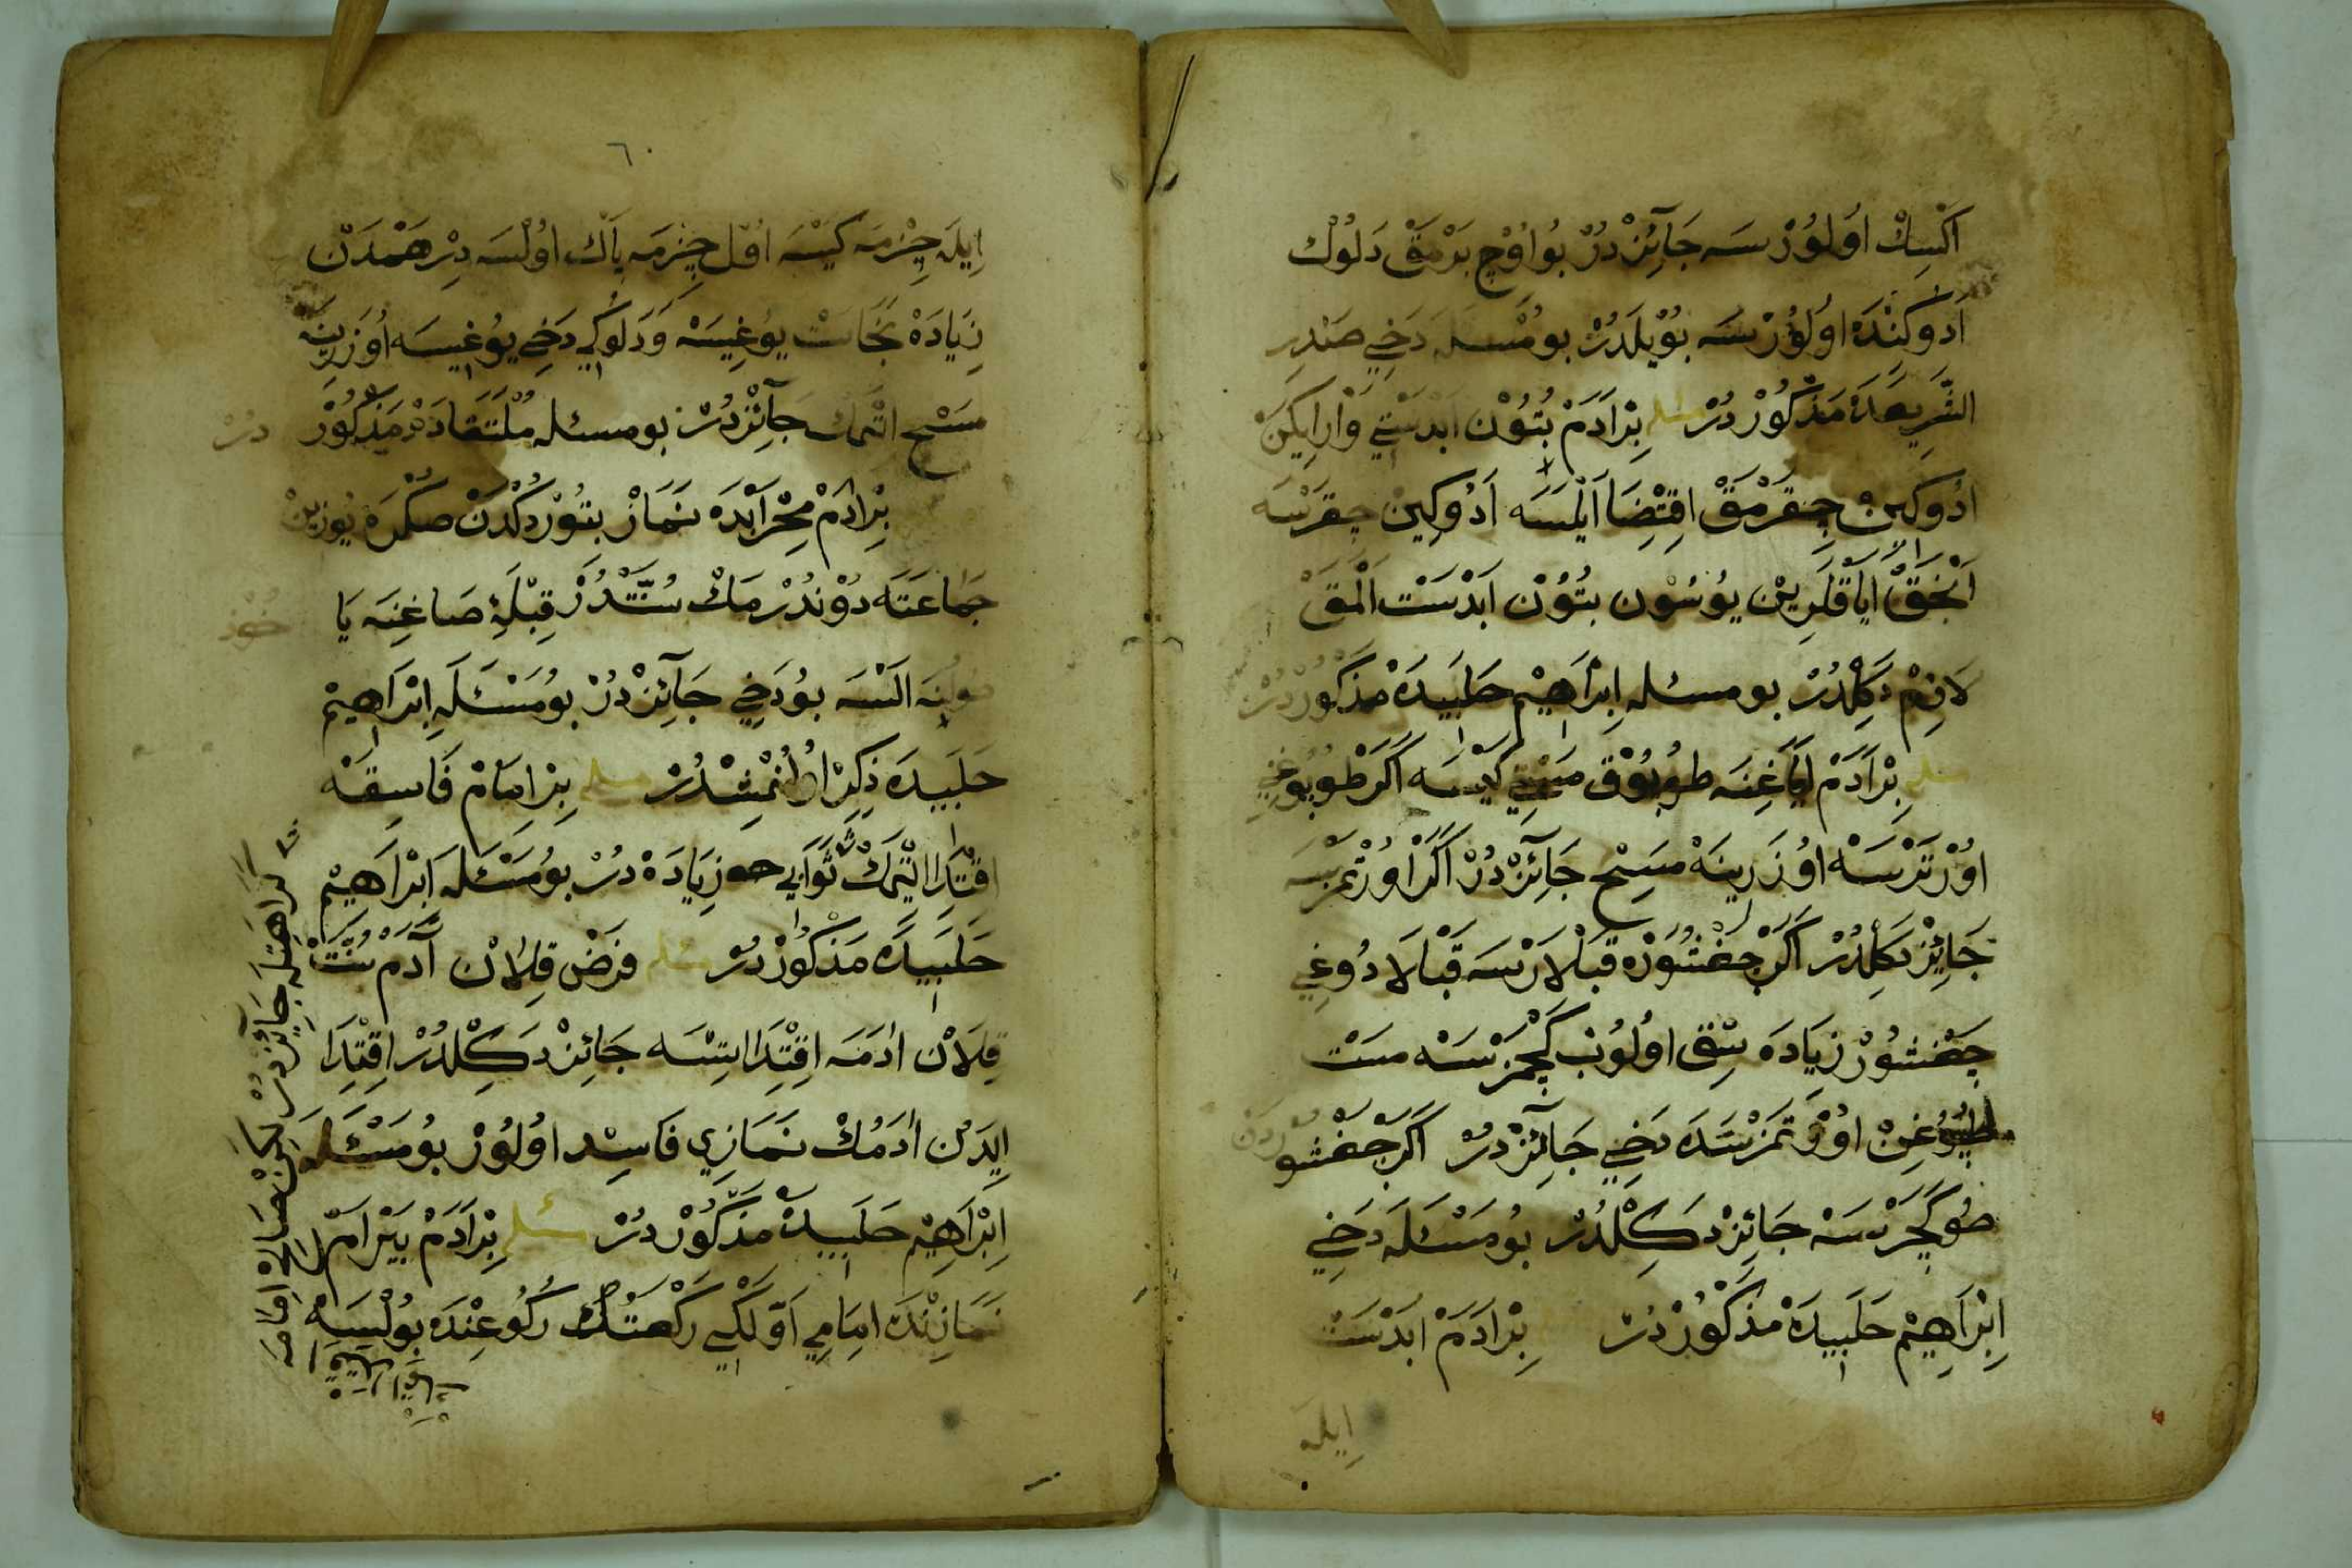 اَكْسِكْ اُولُورْسَه جَآئِزْدُرْ بُو اُوْچ بَرْمَقْ دَلُوكْ
اَدُوكِنْدَه اُولُوْرْسَه بُوْيلَدُرْ بو مَسْئَلَه دَخِي صَدْرِ
الشَّرِيعَدَه مَذْكُوْرْدُرْ مسئله بِرْاَدَمْ بُتُوْن اَبْدَسْتِي وَارِايكَنْ
اَدُوكِينْ چِقَرْمَقْ اِقْتِضَا اَيْلَسَه اَدُوكِينْ چِقَرْسَه
اَنْجَقْ اَيَاقْلَرِينْ يُوسُون بُتُوْن اَبْدَسْت اَلْمَقْ
لَازِمْ دَكِلْدُرْ بو مسئله اِبْرَاهِيْم حَلَبِيدَه مَذْكُورْدُرْ
مسئله بِرْاَدَمْ اَيَاغِنَه طُوبُوْق مَسْتِي كَيْسَه اَكَرْ طُوبُوغِي
اُوْرْتَرْسَه اُوْزَرِينَه مَسِحْ جَآئِزْدُرْ اَكَرْ اُورْتْمَزْسَه
جَائِزْ دَكِلْدُرْ اَكَرْ چَغْشُورَه قَبْلَارْسَه قَبْلَادُوغِي
چَغْشُوْرْ زِيَادَه سِقْ اُولُوبْ كَچْمَزْسَه مَسْت
طُوبُوغِنْ اُوْرْتْمَزْسَدَه دَخِي جَآئِزْدُرْ اَكَرْ چَغْشُورْدَنْ
صُو كَچَرْسَه جَائِزْ دَكِلْدُرْ بُو مَسْئَلَه دَخِي
اِبْرَاهِيْم حَلَبِيدَه مَذْكُوْرْدُرْ بِرْاَدَمْ اَبْدَسْت
اِيلَه
٦٠
اِيلَه چِزْمَه كَيْسَه اُوْل چِزْمَه پَاك اُولْسَه دِرْهَمْدَنْ
زِيَادَه نَجَاسَتْ يُوغِيسَه وَدَلُوكِي دَخِي يُوغِيسَه اُوزَرِينَه
مَسْح اِتْمَك جَآئِزْدُرْ بو مسئله مُلْتَقَادَه مَذْكُوْرْ دُرْ
بِرْاَدَمْ مِحْرَابْدَه نَمَازْ بتُوْردُكْدَنْ صكْرَه يُوزِينْ
جَمَاعَتَه دُوْندُرْمَكْ سُنَّتْدُرْ قِبْلَهِ صَاغِنَه يَا
صُولِنَه اَلْسَه بُو دَخِي جَآئِزْدُرْ بُو مَسْئَلَه اِبْرَاهِيْم
حَلَبِيدَه ذِكِرْ اُولُنْمِشْدُرْ مسئله بِرْ اِمَامْ فَاسِقَه
اِقْتِدَا اِتْمَكْ ثَوَابِي زِيَادَه دُرْ بُو مَسْئَلَه اِبْرَاهِيْم
حَلَبِيدَه مَذْكُوْرْدُرْ مسئله فَرْضْ قِلَانْ آدَمْ سُنَّتْ
قِلَانْ اَدَمَه اِقْتِدَا اِتْسَه جَائِزْ دَكِلْدُرْ اِقْتِدَا
اِيدَنْ اَدَمُكْ نَمَازِي فَاسِد اُولُوْرْ بُو مَسْئَلَه
اِبْرَاهِيْم حَلَبِيدَه مَذْكُوْرْدُرْ مسئله بِرْاَدَمْ بَيْرَامْ
نَمَازِنْدَه اِمَامِي اَوَّلْكِي رَكْعَتُكْ رُكُوعِنْدَه بُولْسَه
كَرَاهَتْلَه جَائِزْدُرْ لَكِنْ صَالِح اِمَامَه